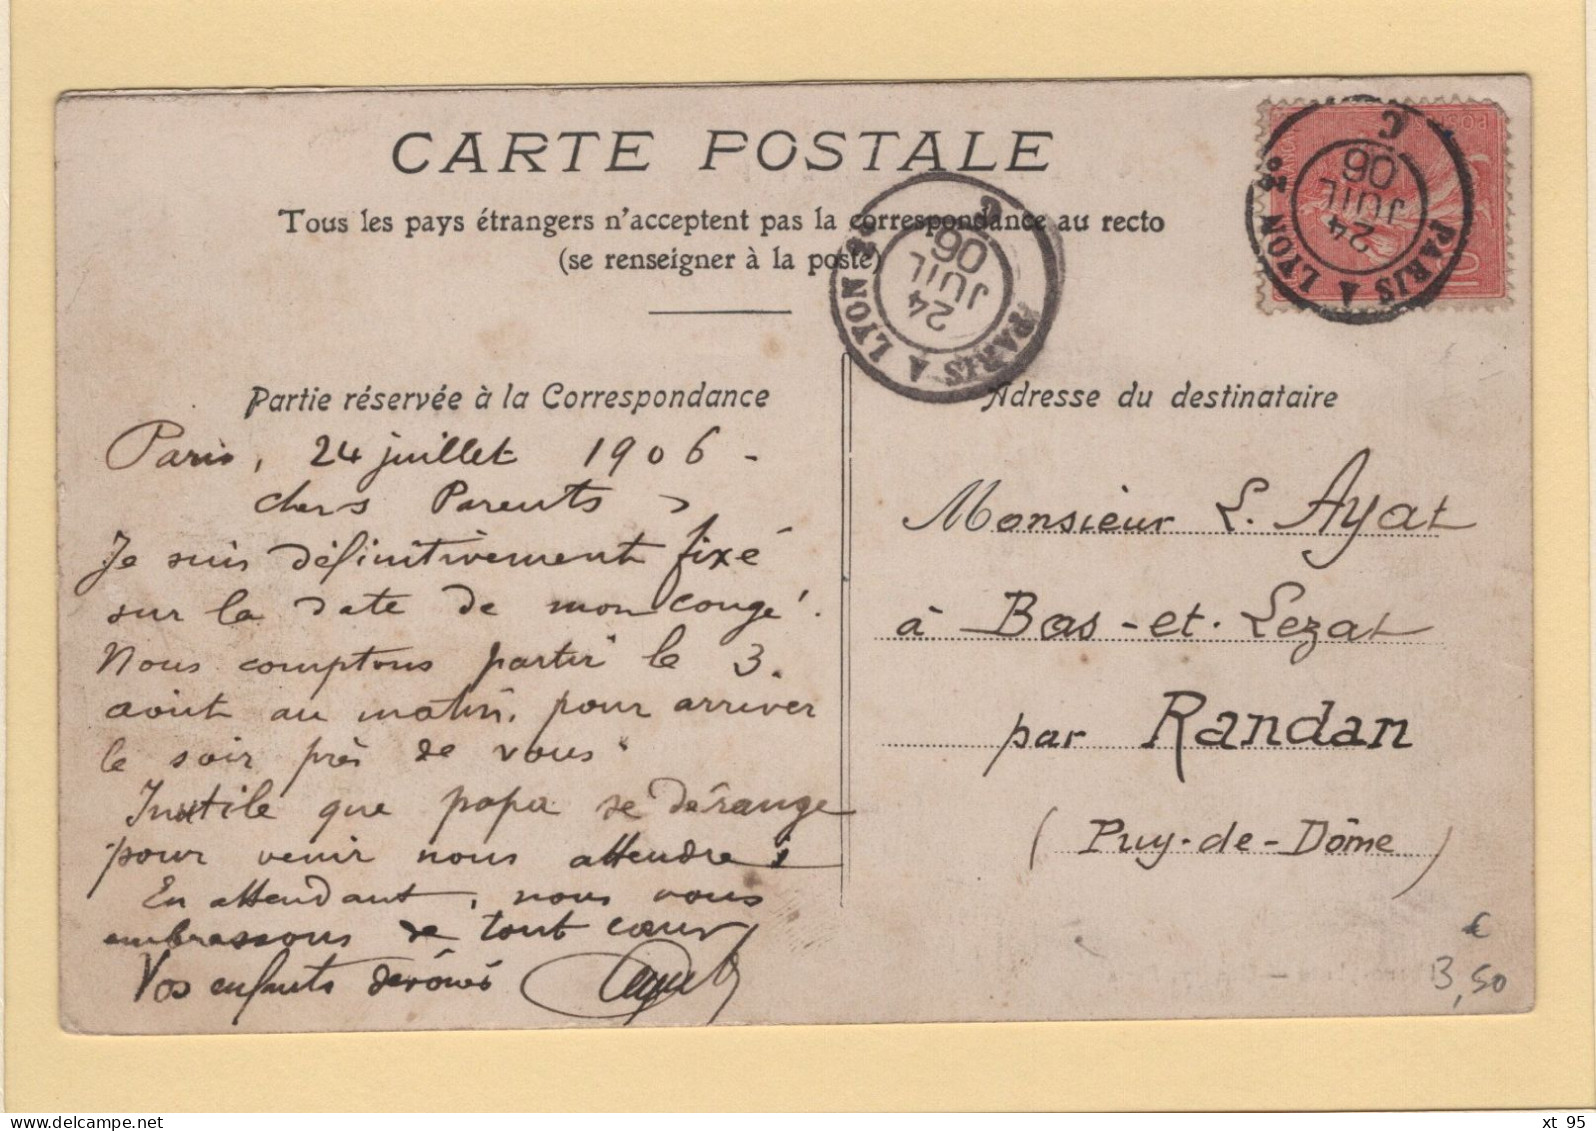 CARTE POSTALE
Tous les pays étrangers n'acceptent pas la correspondance au recto
(se renseigner à la poste)
PARIS A LYON 2°
C
24
JUIL
06
PARIS A LYON 2°
C
24
JUIL
06
POSTES
10
Partie réservée à la Correspondance
Paris, 24 juillet 1906 -
chers Parents,
Je suis définitivement fixé
sur la date de mon congé.
Nous comptons partir le 3
août au matin, pour arriver
le soir près de vous.
Inutile que papa se dérange
pour venir nous attendre.
En attendant, nous vous
embrassons de tout cœur,
Vos enfants dévoués
Ayat
Adresse du destinataire
Monsieur L. Ayat
à Bas-et-Lezat
par Randan
(Puy-de-Dôme)
€
3,50
xt 95